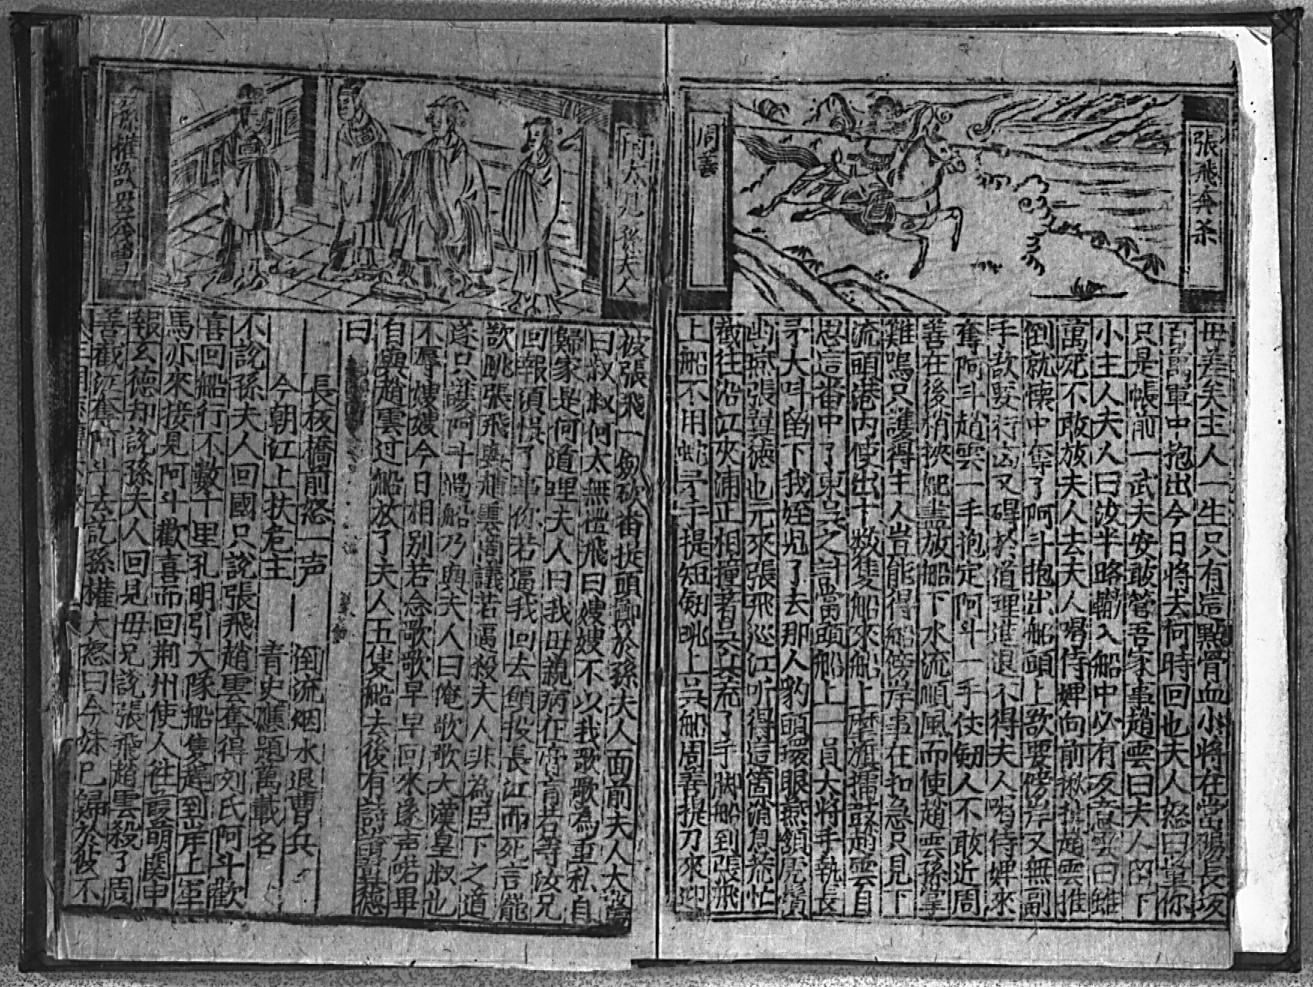 張飛奔杀
周善
毋差矣主人一生只有這點骨血小將在當陽長坂
百萬軍中抱出今日將去何時回也夫人怒曰量你
只是帳前一武夫安敢管吾家事趙雲曰夫人留下
小主人夫人曰汝半路輙入船中必有反意雲曰雖
萬死不敢放夫人去夫人喝侍婢向前揪扯趙雲推
倒就懷中奪了阿斗抱出船頭上欲要傍岸又無副
手欲要行凶又碍於道理進退不得夫人喝侍婢來
奪阿斗趙雲一手抱定阿斗一手仗劒人不敢近周
善在後梢挾舵盡放船下水流順風而使趙雲孤掌
難鳴只護得主人豈能得船傍岸事在扣急只見下
流頭港內使出十數隻船來船上磨旗擂鼓趙雲自
思這番中了東吳之計當頭船上一員大將手執長
矛大叫留下我姪兒了去那人豹頭環眼燕頷虎鬚
幽燕張翼德也元來張飛巡江听得這箇消息慌忙
截住沿江夾浦正相撞著吳兵荒了手脚船到張飛
上船不用蛇矛手提短劒跳上吳船周善提刀來迎
周太兄孫夫人
被張飛一劍砍番提頭擲於孫夫人面前夫人大驚
曰叔叔何太無禮飛曰嫂嫂不以我歌歌為重私自
歸家是何道理夫人曰我毋親病在膏肓若等汝兄
回報須悞了事你若逼我回去願投長江而死言罷
欲跳張飛與趙雲商議若逼殺夫人非為臣下之道
遂只護阿斗過船乃與夫人曰俺歌歌大漢皇叔也
不辱嫂嫂今日相別若念歌歌早早回來遂声喏畢
自與趙雲过船放了夫人五隻船去後有詩單賛翼德
曰
長坂橋前怒一声 倒流烟水退曹兵
今朝江上扶危主 青史應題萬載名
不說孫夫人回國只說張飛趙雲奪得刘氏阿斗歡
喜回船行不數十里孔明引大隊船隻趕到岸上軍
馬亦來接見阿斗歡喜而回荊州使人往葭萌關申
報玄德知說孫夫人回見毋兄說張飛趙雲殺了周
善截江奪阿斗去訖孫權大怒曰今妹已歸於彼不